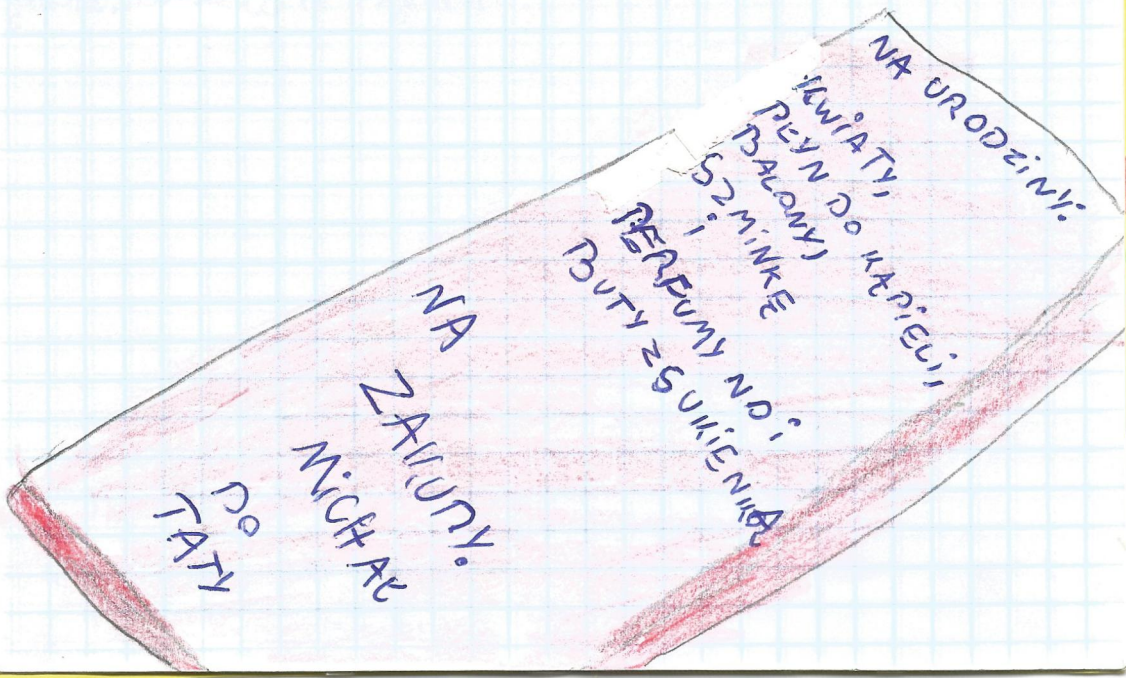 NA URODZINY:
KWIATY,
PŁYN DO KĄPIELI,
BALONY,
SZMINKĘ
i
PERFUMY NO i
BUTY Z SUKIENKĄ
NA
ZAKUPY.
MiCHAŁ
DO
TATY